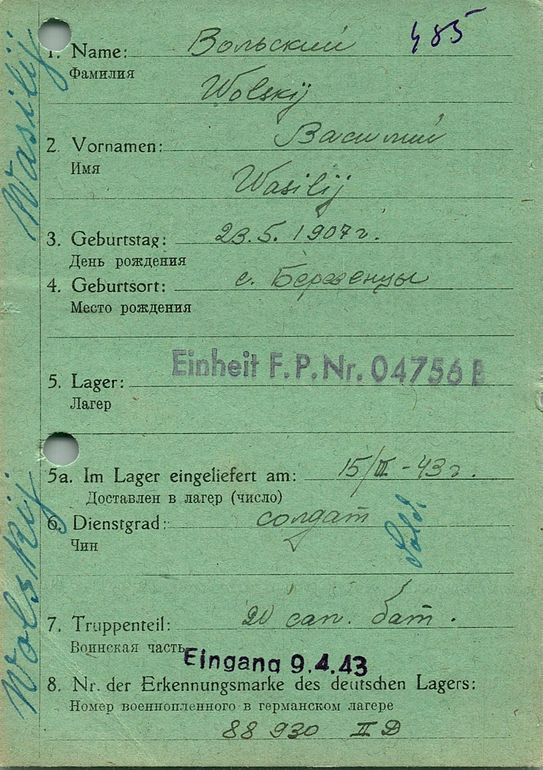 485
1. Name: Вольский
Фамилия
Wolskij
2. Vornamen: Василий
Имя
Wasilij
3. Geburtstag: 23.5.1907г.
День рождения
4. Geburtsort: с. Березенцы
Место рождения
Einheit F.P.Nr. 04756 B
5. Lager:
Лагер
5a. Im Lager eingeliefert am: 15/III-43г.
Доставлен в лагер (число)
6. Dienstgrad: солдат
Чин
Sold.
7. Truppenteil: 20 сап. бат.
Воинская часть
Eingang 9.4.43
8. Nr. der Erkennungsmarke des deutschen Lagers:
Номер военнопленного в германском лагере
88 930 II D
Wolskij
Wasilij